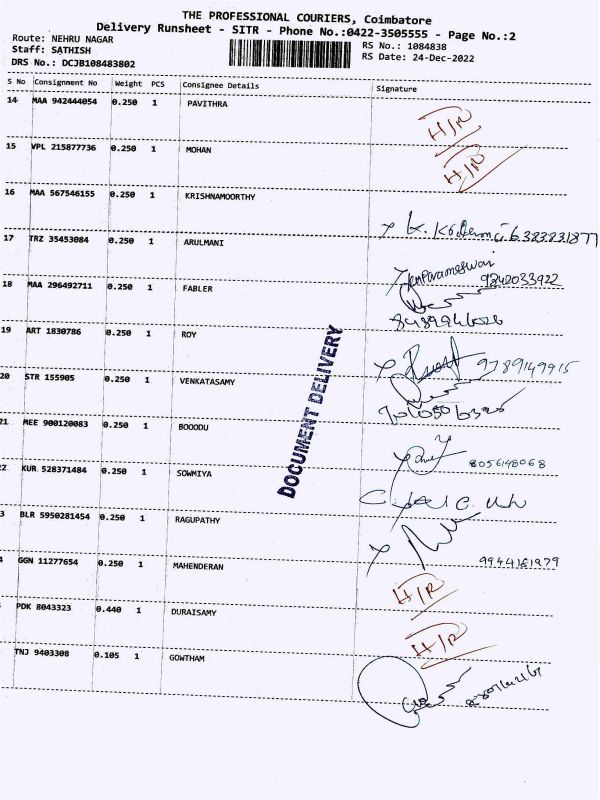 THE PROFESSIONAL COURIERS, Coimbatore
Delivery Runsheet - SITR - Phone No.:0422-3505555 - Page No.:2
Route: NEHRU NAGAR
Staff: SATHISH
DRS No.: DCJB108483802
RS No.: 1084838
RS Date: 24-Dec-2022
S No Consignment No Weight PCS Consignee Details Signature
14 MAA 942444054 0.250 1 PAVITHRA H/R
15 VPL 215877736 0.250 1 MOHAN H/R
16 MAA 567546155 0.250 1 KRISHNAMOORTHY 6383831877
17 TRZ 35453084 0.250 1 ARULMANI Parameswari 9242033922
18 MAA 296492711 0.250 1 FABLER
19 ART 1830786 0.250 1 ROY 9789149915
20 STR 155905 0.250 1 VENKATASAMY
21 MEE 900120083 0.250 1 BOOODU 8056148068
2 KUR 528371484 0.250 1 SOWMIYA
3 BLR 5950281454 0.250 1 RAGUPATHY 9944161979
GGN 11277654 0.250 1 MAHENDERAN H/R
PDK 8043323 0.440 1 DURAISAMY H/R
TNJ 9403308 0.105 1 GOWTHAM
DOCUMENT DELIVERY